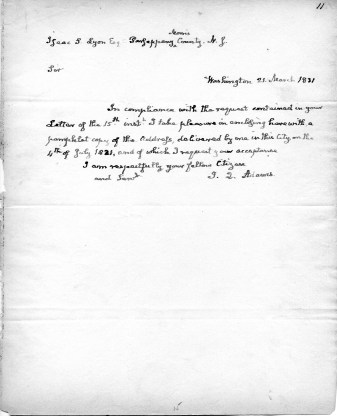 11
Morris
Isaac S. Lyon Esq Parsippany County. N. J.
Sir
Washington 21 March 1831
In compliance with the request contained in your
Letter of the 15th inst. I take pleasure in enclosing herewith a
pamphlet copy of the Address, delivered by me in this City on the
4th of July 1821, and of which I request your acceptance
I am respectfully your fellow Citizen
and Servt J. Q. Adams